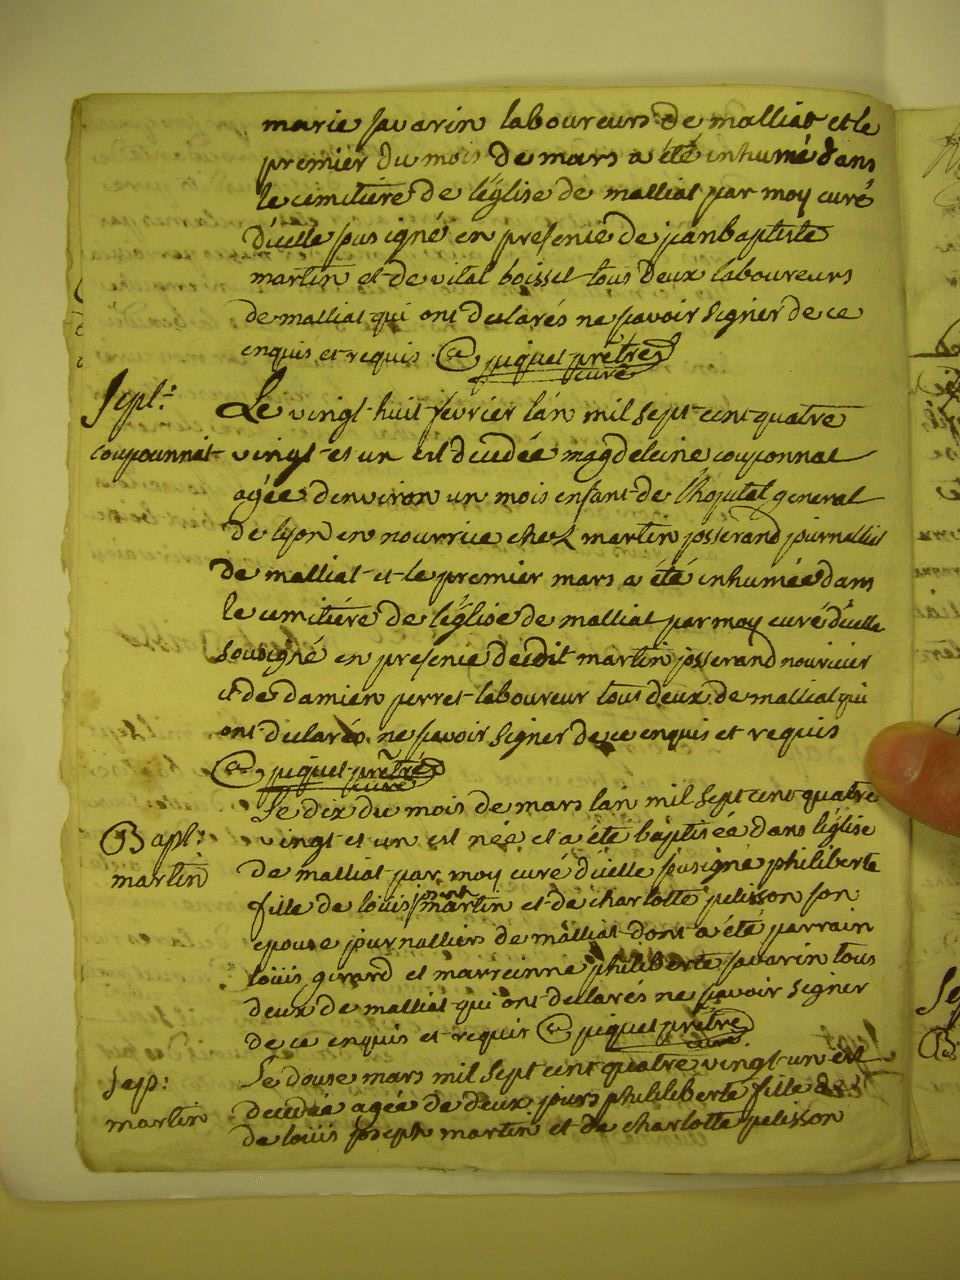 marie savarin laboureurs de malliat et le
premier du mois de mars a été inhumé dans
le cemitiére de léglise de malliat par moy curé
d'icelle sousigné en presence de jeanbaptiste
martin et de vital boissel tous deux laboureurs
de malliat qui ont declarés ne savoir signer de ce
enquis et requis piquet prêtre
curé
Sepl.re
couponnat
Le vingt huit fevrier lan mil sept cent quatre
vingt et un est dicedée magdeleine couponnat
agée denviron un mois enfant de lhopital general
de lyon en nourrice chez martin josserand journallié
de malliat et le premier mars a été inhumée dans
le cemitiére de léglise de malliat par moy curé d'icelle
sousigné en presence dudit martin josserand nouricier
et de damien perret laboureur tous deux de malliat qui
ont declarés ne savoir signer de ce enquis et requis
piquet prêtre
curé
Bapt:
martin
Le dix du mois de mars lan mil sept cent quatre
vingt et un est née et a été baptiséa dans léglise
de malliat par moy curé d'icelle sousigné philiberte
fille de louis martin et de charlotte pelisson son
epouse journalliers de malliat dont a été parrain
loüis girard et marreinne philiberte savarin tous
deux de malliat qui ont declarés ne savoir signer
de ce enquis et requis piquet prêtre
curé
Sep:
martin
Le douse mars mil sept cent quatre vingt un est
decedée agée de deux jours philiberte fille
de loüis joseph martin et de charlotte pelisson